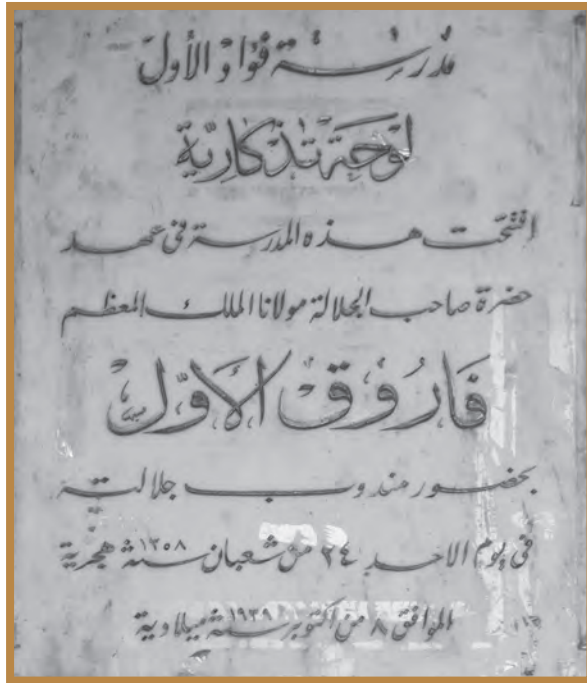 مدرسة فؤاد الأول
لوحة تذكارية
افتتحت هذه المدرسة فى عهد
حضرة صاحب الجلالة مولانا الملك المعظم
فَارُوق الأَوّل
بحضور مندوب جلالته
فى يوم الاحد ٢٤ من شعبان سنة ١٣٥٨ هجرية
الموافق ٨ من اكتوبر سنة ١٩٣٩ ميلادية